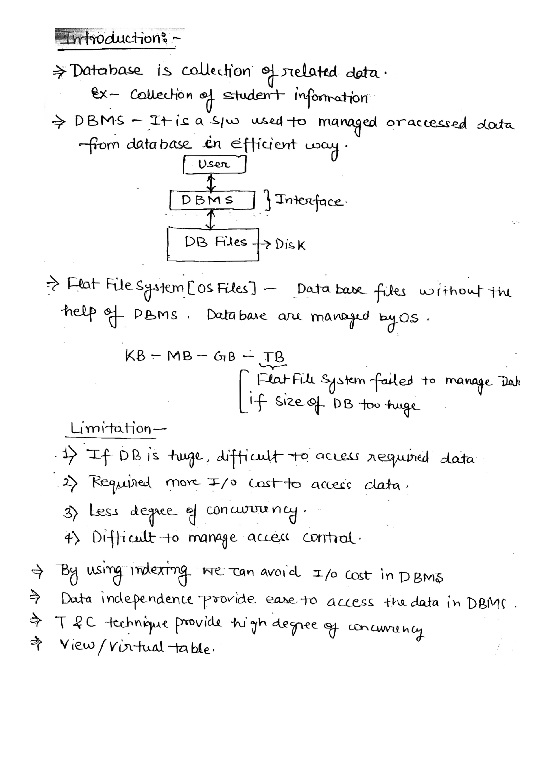 Introduction:-
⇒ Database is collection of related data.
ex- Collection of student information
⇒ DBMS - It is a s/w used to managed or accessed data
from database in efficient way.
User
DBMS } Interface.
DB Files → Disk
⇒ Flat File System [OS Files] - Database files without the
help of DBMS. Database are managed by OS.
KB - MB - GB - TB
Flat File System failed to manage Dat
if size of DB too huge
Limitation-
1) If DB is huge, difficult to access required data
2) Required more I/O cost to access data.
3) Less degree of concurrency.
4) Difficult to manage access control.
⇒ By using indexing we can avoid I/O cost in DBMS
⇒ Data independence provide ease to access the data in DBMS.
⇒ T & C technique provide high degree of concurrency
⇒ View/Virtual table.